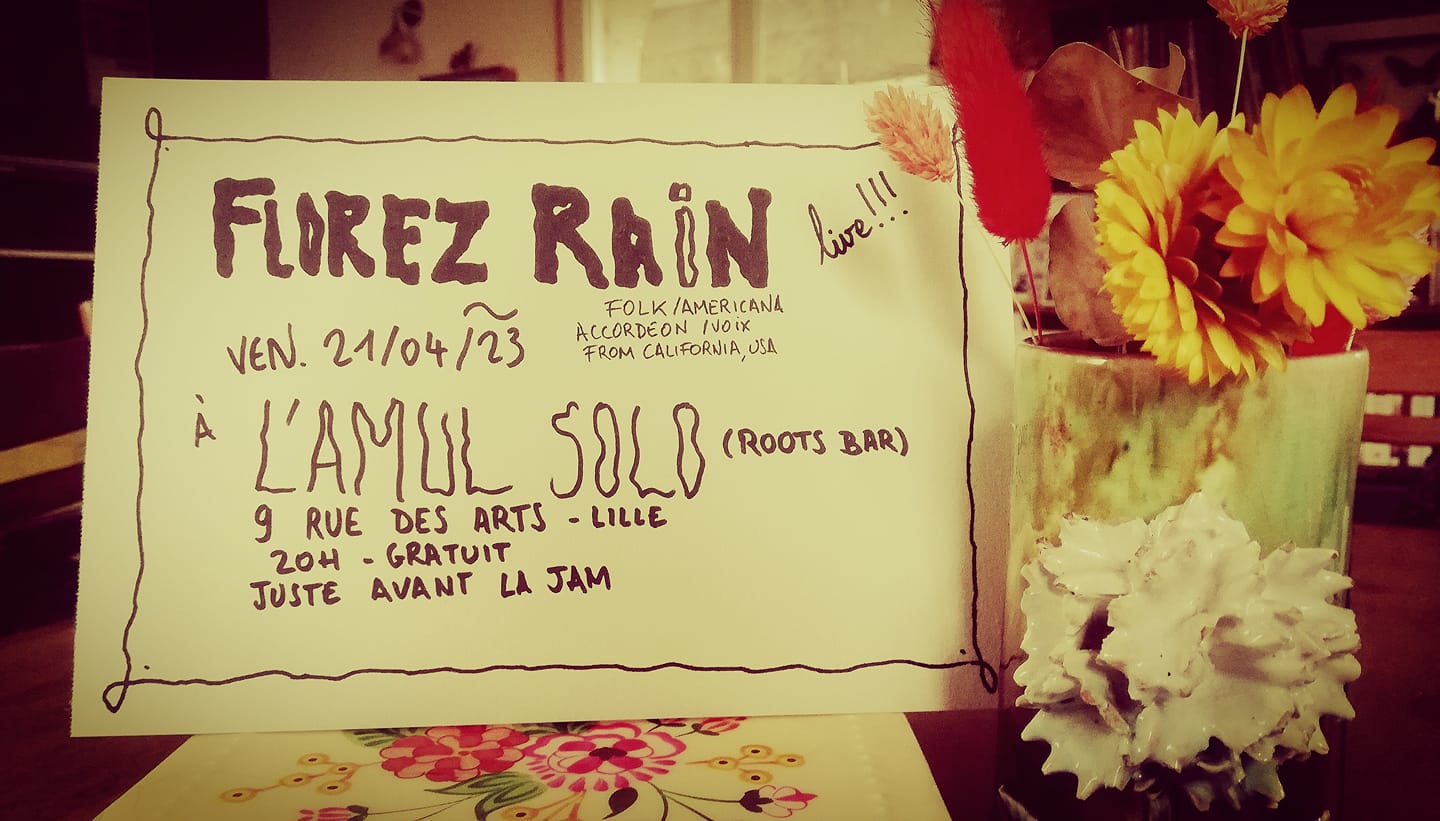 FLOREZ RAiN live!!!
FOLK/AMERICANA
ACCORDEON /VOiX
FROM CALIFORNIA, USA
VEN. 21/04/23
À L'AMUL SOLO (ROOTS BAR)
9 RUE DES ARTS - LILLE
20H - GRATUIT
JUSTE AVANT LA JAM